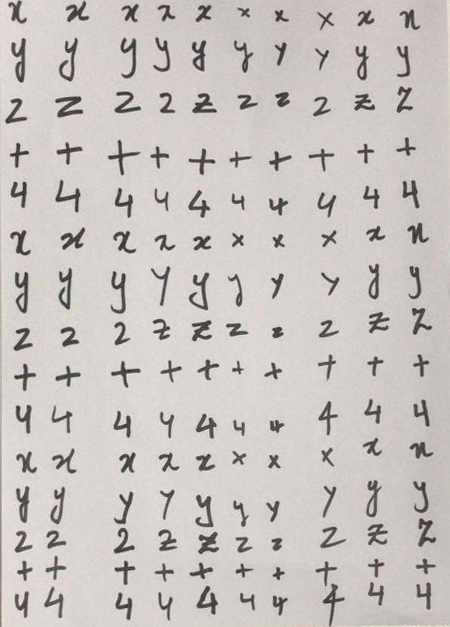 x x x x x x x x x x
y y y y y y y y y y
2 z 2 2 z z z 2 z Z
+ + + + + + + + + +
4 4 4 4 4 4 4 4 4 4
x x x x x x x x x x
y y y y y y y y y y
2 2 2 z z z z 2 z Z
+ + + + + + + + + +
4 4 4 4 4 4 4 4 4 4
x x x x x x x x x x
y y y y y y y y y y
2 2 2 z z z z 2 z Z
+ + + + + + + + + +
4 4 4 4 4 4 4 4 4 4